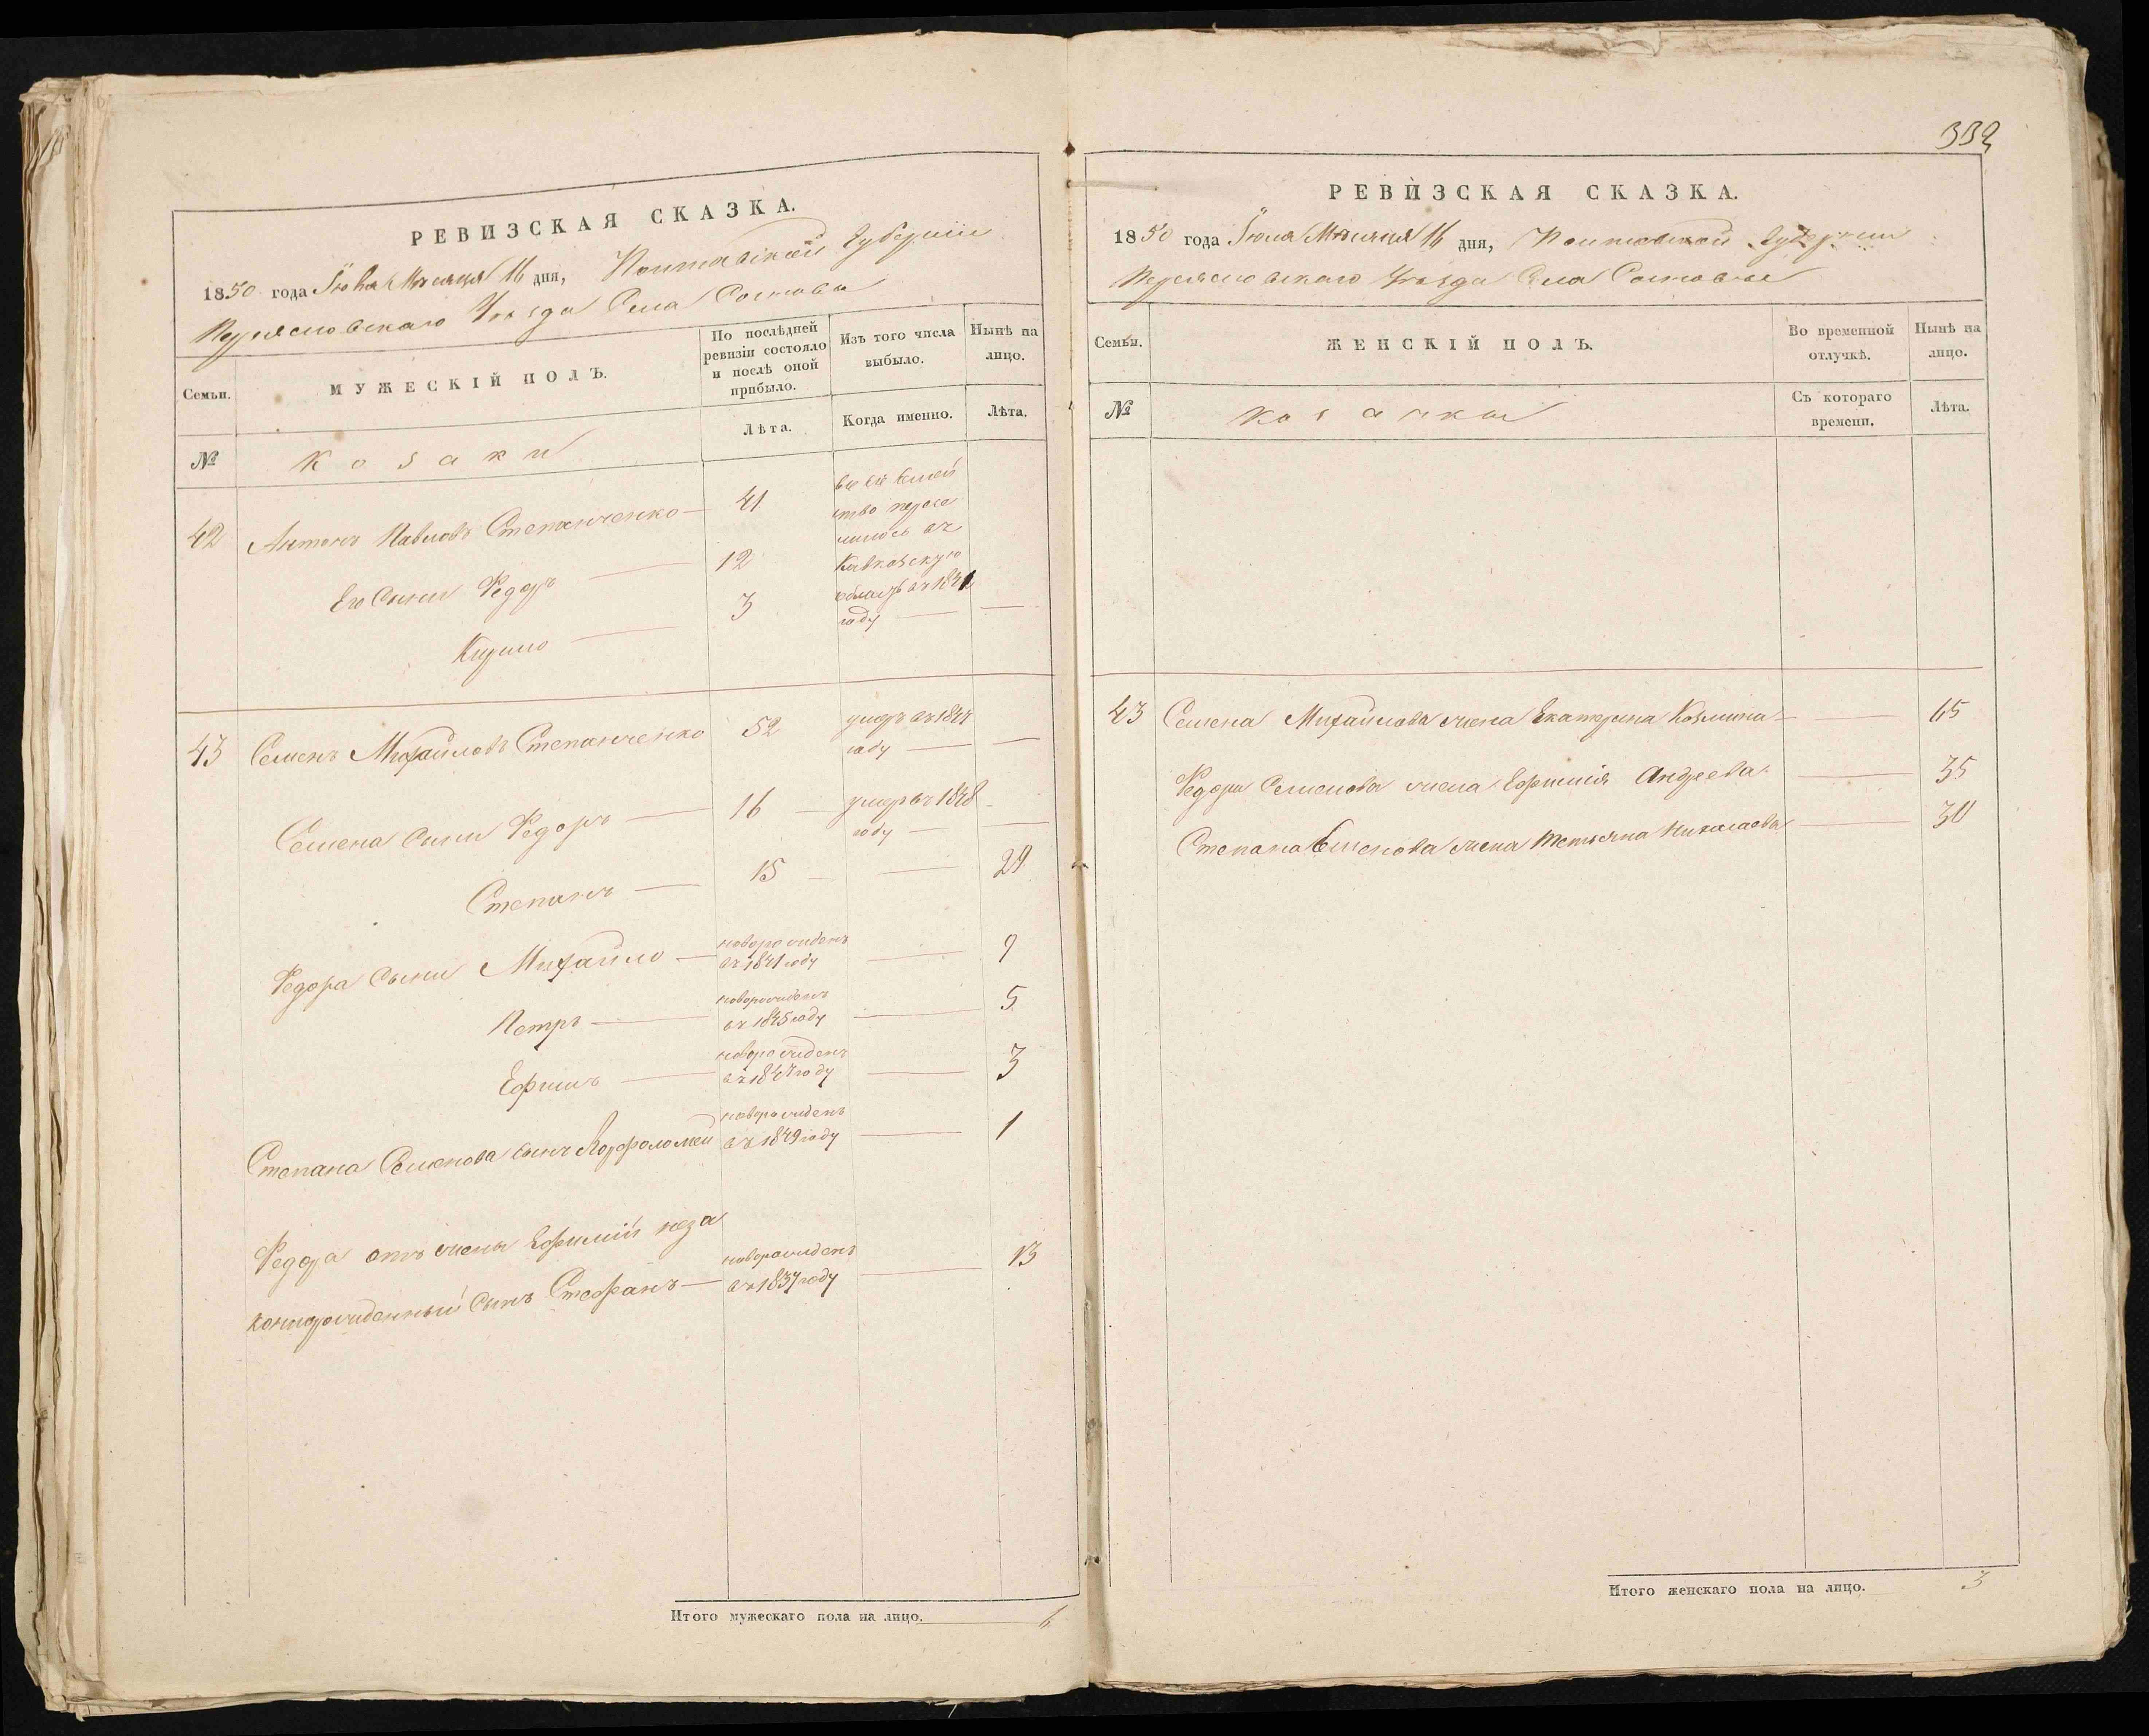 РЕВИЗСКАЯ СКАЗКА.
1850 года Іюля Мѣсяца 16 дня, Полтавской Губерніи
Переяславскаго Уѣзда Села
Семьи.
МУЖЕСКІЙ ПОЛЪ.
По послѣдней ревизіи состояло и послѣ оной прибыло.
Изъ того числа выбыло.
Нынѣ на лицо.
№
Козаки
Лѣта.
Когда именно.
Лѣта.
42 Антонъ Павловъ Степанченко 41
все сіе Семей
ство пересе
лилось въ
Его Сыни Федоръ 12
Кавказскую
область въ
Кирило 3
году
43 Семенъ Михайловъ Степанченко 52 умеръ въ 1844
году
Семена Сыни Федоръ 16 умеръ въ 1848
году
Степанъ 15 29
Федора Сыни Михайло новорожденъ
въ 1841 году 9
Петръ новорожденъ
въ 1845 году 5
Ефимъ новорожденъ
въ 1847 году 3
Степана Семенова сынъ Варфоломей новорожденъ
въ 1849 году 1
Федора отъ жены Ефиміи неза
коннорожденный Сынъ Стефанъ новорожденъ
въ 1837 году 13
Итого мужескаго пола на лицо. 6
332
РЕВИЗСКАЯ СКАЗКА.
1850 года Іюля Мѣсяца 16 дня, Полтавской Губерніи
Переяславскаго Уѣзда Села
Семьи.
ЖЕНСКІЙ ПОЛЪ.
Во временной отлучкѣ.
Нынѣ на лицо.
№
Козачки
Съ котораго времени.
Лѣта.
43 Семена Михайлова жена Екатерина Козмина 65
Федора Семенова жена Ефимія Андреева 35
Степана Семенова жена Татьяна Николаева 30
Итого женскаго пола на лицо. 3